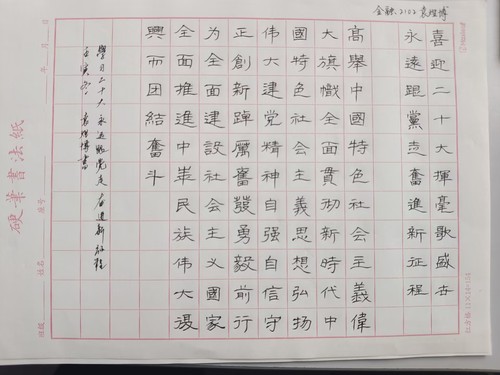 金融2102 袁煜博
喜迎二十大揮毫歌盛世
永遠跟黨走奮進新征程
高舉中國特色社会主義偉
大旗幟全面貫彻新時代中
國特色社会主義思想弘扬
伟大建党精神自强自信守
正創新踔厲奮發勇毅前行
为全面建設社会主义國家
全面推進中华民族伟大復
興而团结奮斗
學习二十大 永远跟党走 奋进新征程
壬寅冬 袁煜博書
硬筆書法紙
班級 姓名 座号 年 月 日